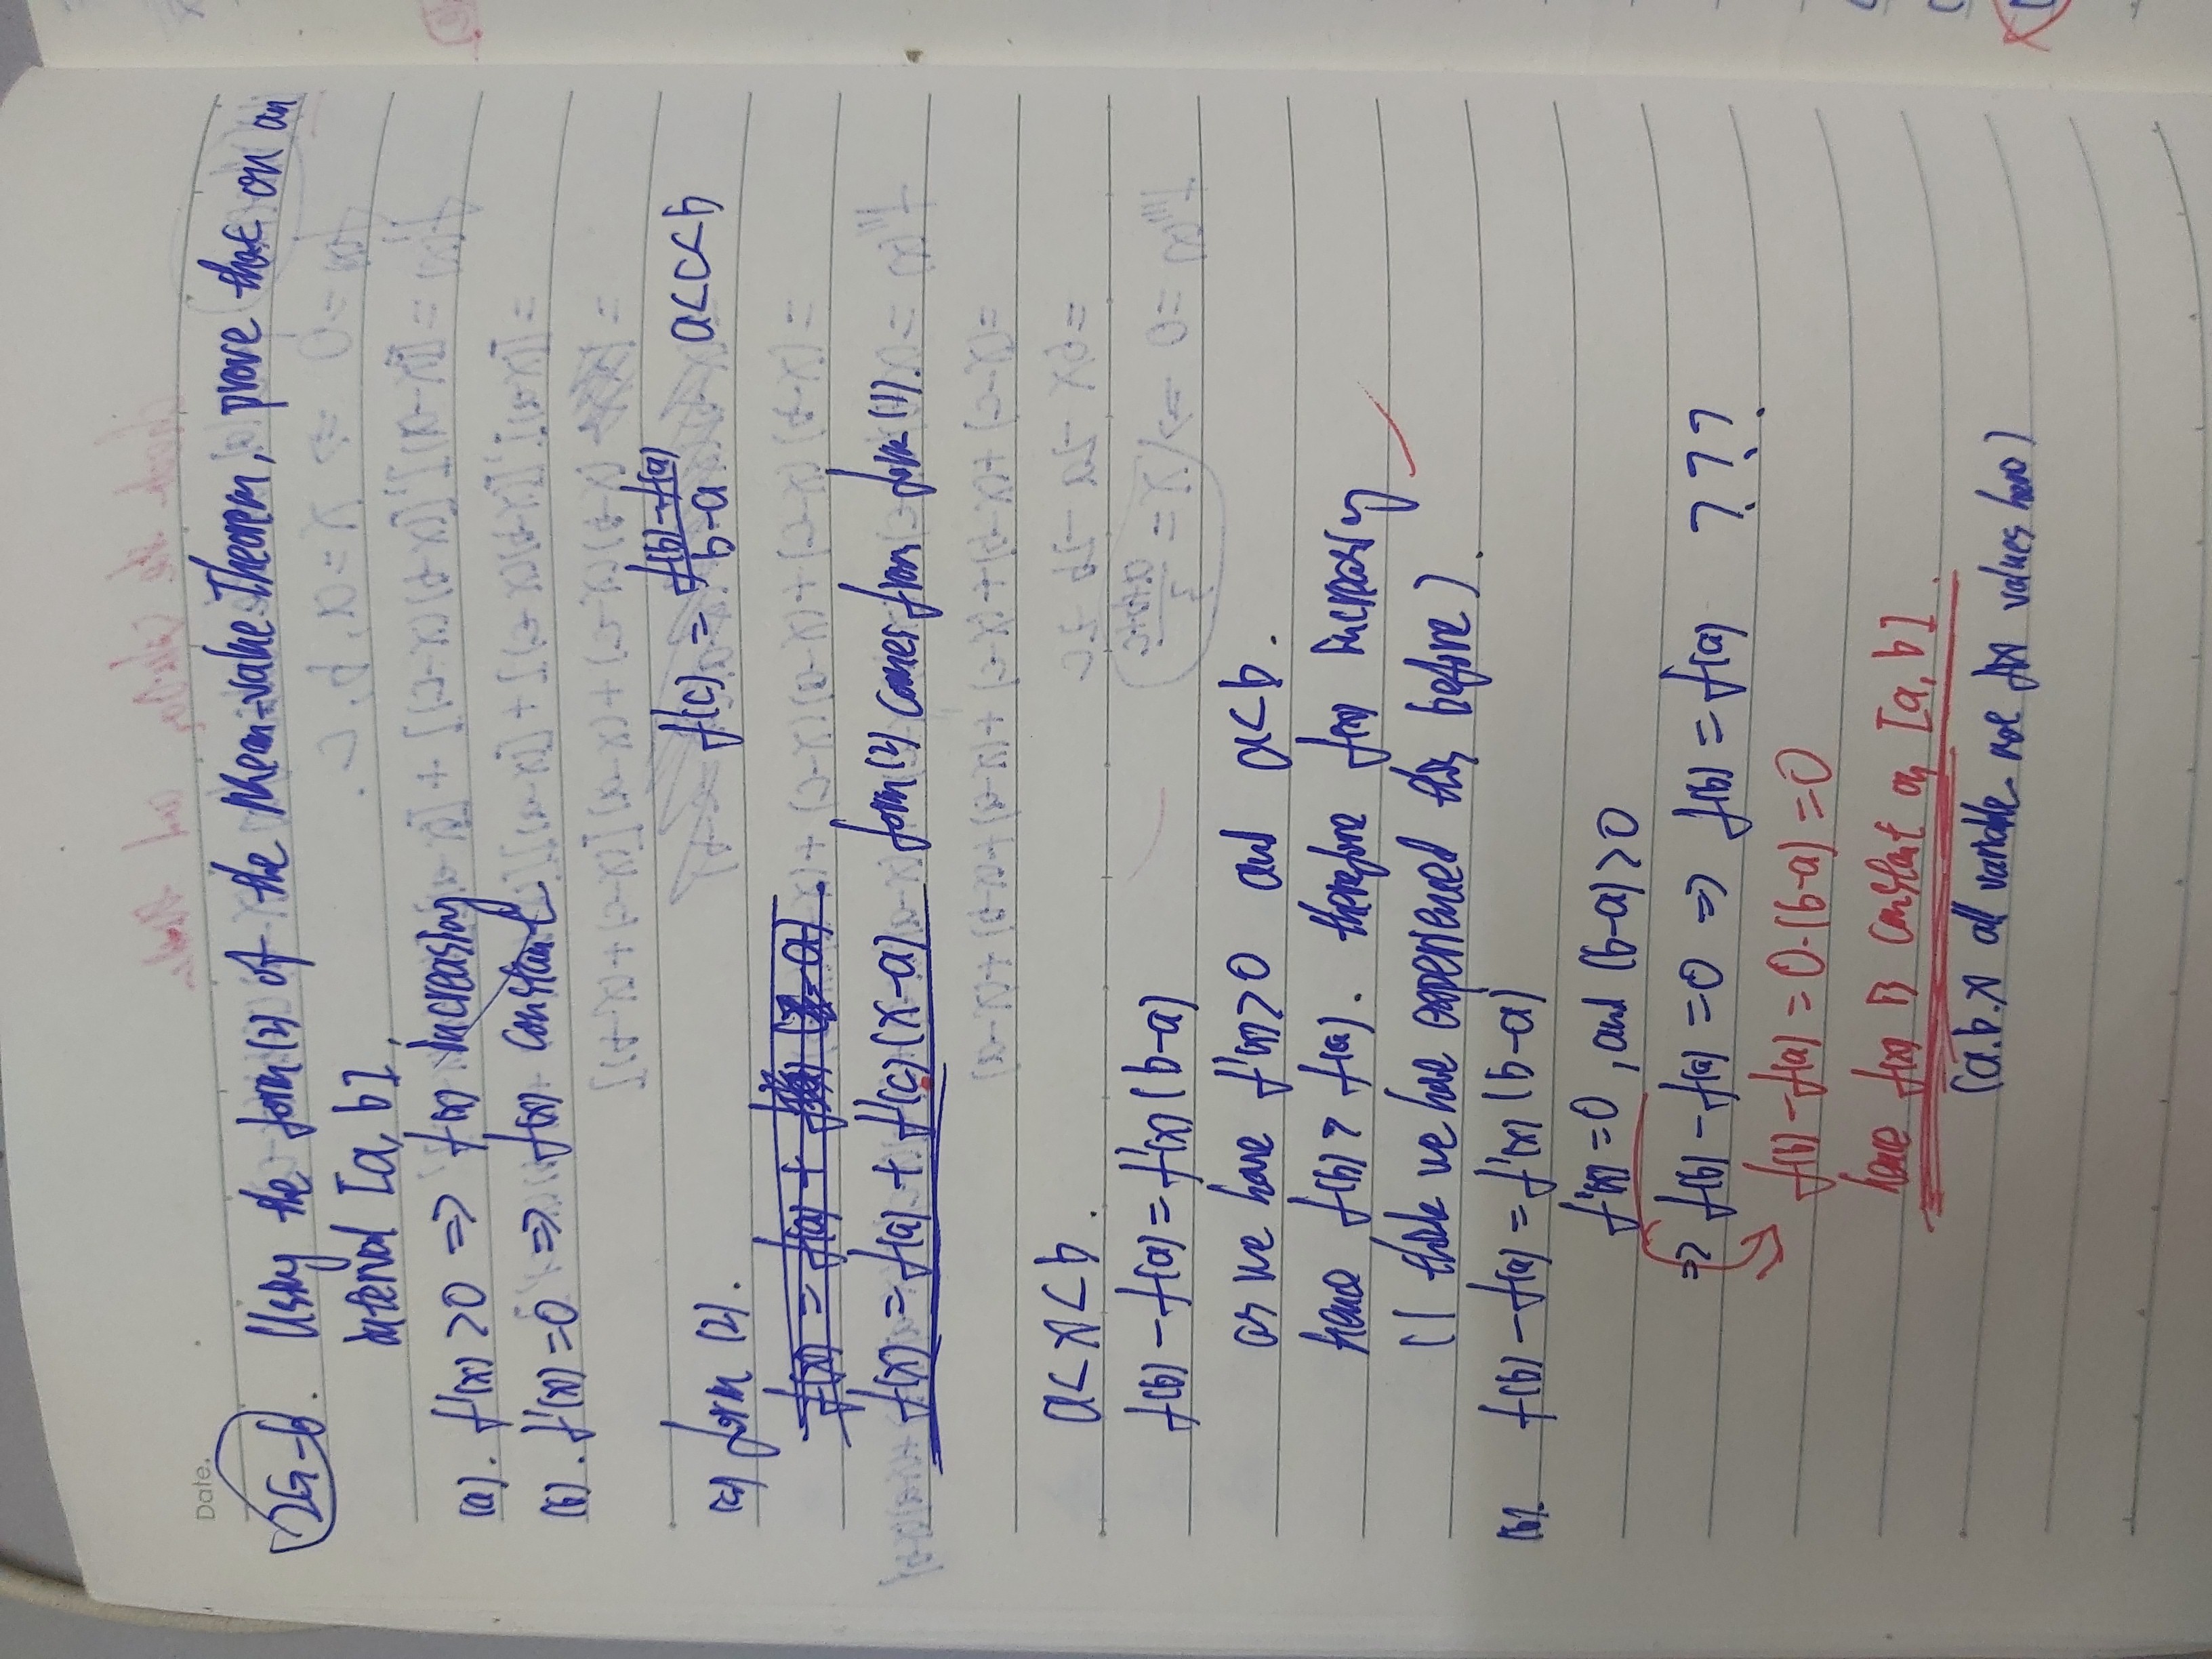 Date.
2G-6. Using the form (2) of the Mean-value Theorem, prove that on an
interval [a, b],
(a). f'(x) > 0 => f(x) increasing
(b). f'(x) = 0 => f(x) constant
(a) form (2). f'(c) = f(b)-f(a) / b-a a<c<b
f(x) = f(a) + f'(c) (x-a) form (2) comes from form (1).
a<x<b.
f(b) - f(a) = f'(x) (b-a)
as we have f'(x) > 0 and a<b.
hence f(b) > f(a). therefore f(x) increasing
(I think we have experienced this before).
(b). f(b) - f(a) = f'(x) (b-a)
f'(x) = 0, and (b-a) > 0
=> f(b) - f(a) = 0 => f(b) = f(a) ???
f(b) - f(a) = 0·(b-a) = 0
hence f(x) is constant on [a, b].
(a.b.x all variable not fix values here)